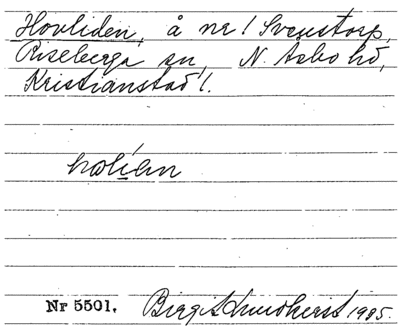 Hovliden, å nr 1 Svenstorp,
Riseberga sn, N. Åsbo hd,
Kristianstad l.
Nr 5501. Birgit 1985.